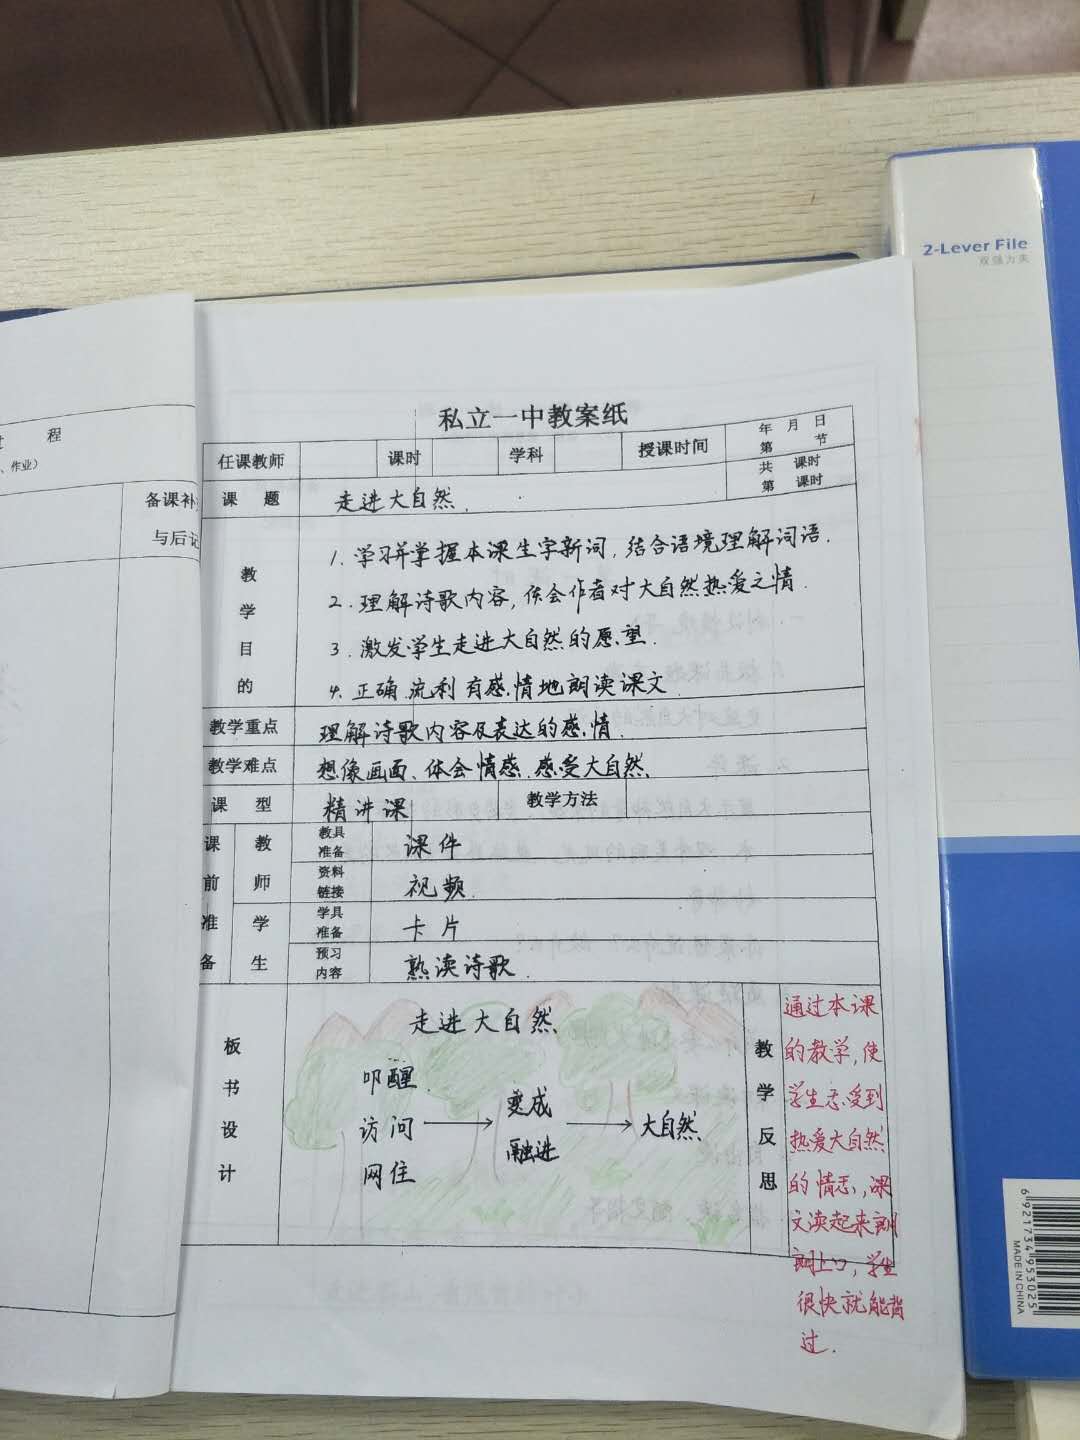 2-Lever File
双强力夹
私立一中教案纸
过 程
、作业）
备课补
与后记
任课教师 课时 学科 授课时间 年 月 日
第 节
共 课时
第 课时
课 题 走进大自然.
教学目的
1. 学习并掌握本课生字新词, 结合语境理解词语.
2. 理解诗歌内容, 体会作者对大自然热爱之情.
3. 激发学生走进大自然的愿望.
4. 正确 流利 有感情地朗读课文
教学重点 理解诗歌内容及表达的感情.
教学难点 想像画面、体会情感 感受大自然
课 型 精讲课 教学方法
课前准备
教师
教具准备 课件
资料链接 视频.
学生
学具准备 卡片
预习内容 熟读诗歌.
板书设计
走进大自然
叩醒
访问 → 变成 → 大自然
网住 融进
教学反思
通过本课
的教学, 使
学生感受到
热爱大自然
的情感, 课
文读起来朗
朗上口, 学生
很快就能背
过.
6 921734 953025
MADE IN CHINA